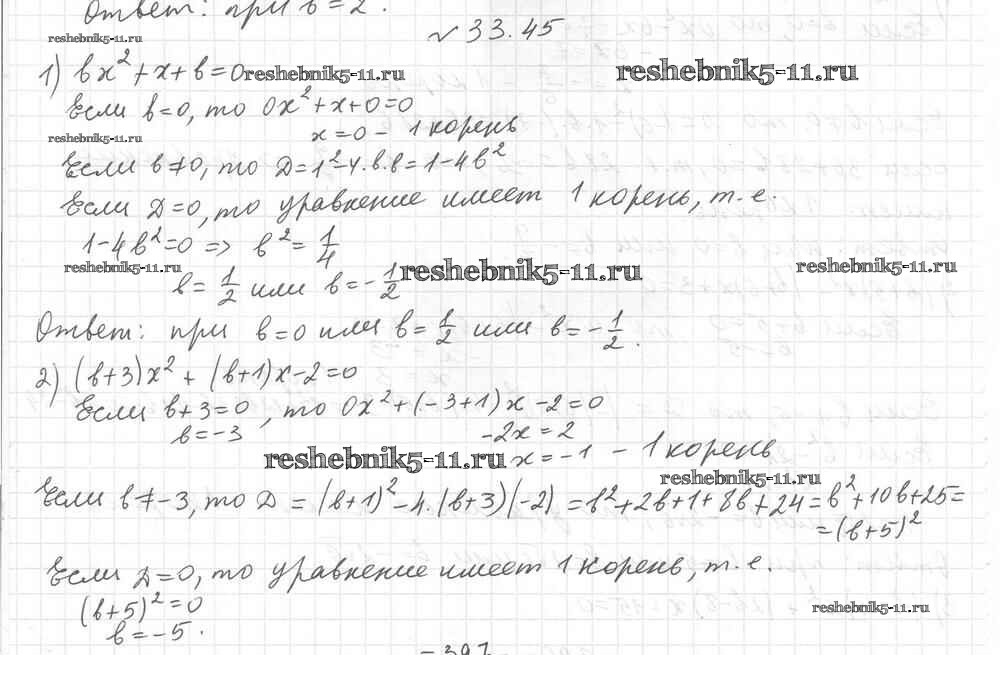 Ответ: при b = 2.
№ 33.45
reshebnik5-11.ru
1) bx² + x + b = 0 reshebnik5-11.ru
reshebnik5-11.ru
Если b=0, то 0x² + x + 0 = 0
x = 0 – 1 корень
reshebnik5-11.ru
Если b ≠ 0, то D = 1² - 4·b·b = 1 - 4b²
Если D=0, то уравнение имеет 1 корень, т.е.
1 - 4b² = 0 => b² = 1/4
reshebnik5-11.ru
reshebnik5-11.ru
reshebnik5-11.ru
b = 1/2 или b = -1/2
Ответ: при b=0 или b = 1/2 или b = -1/2.
2) (b+3)x² + (b+1)x - 2 = 0
Если b+3=0, то 0x² + (-3+1)x - 2 = 0
b = -3
-2x = 2
reshebnik5-11.ru x = -1 – 1 корень
reshebnik5-11.ru
Если b ≠ -3, то D = (b+1)² - 4·(b+3)(-2) = b² + 2b + 1 + 8b + 24 = b² + 10b + 25 =
= (b+5)²
Если D=0, то уравнение имеет 1 корень, т.е.
(b+5)² = 0
reshebnik5-11.ru
b = -5.